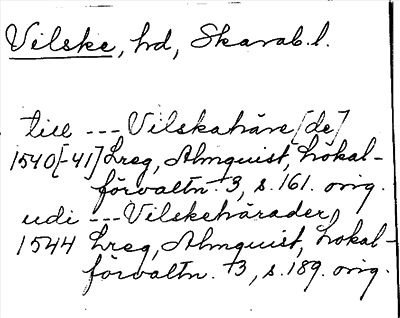 Vilske, hd, Skarab.l.
till --- Vilskahäre[de]
1540[-41] Lreg, Almquist, Lokal-
förvaltn. 3, s. 161. orig.
udi --- Vilskehärader,
1544 Lreg, Almquist, Lokal-
förvaltn. 3, s. 189. orig.